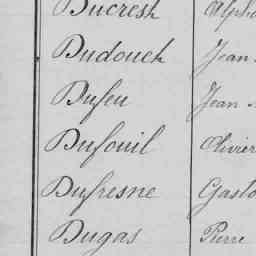 Ducresh Alph
Dudouch Jean
Dufeu Jean
Dufouil Olivier
Dufresne Gasto
Dugas Pierre